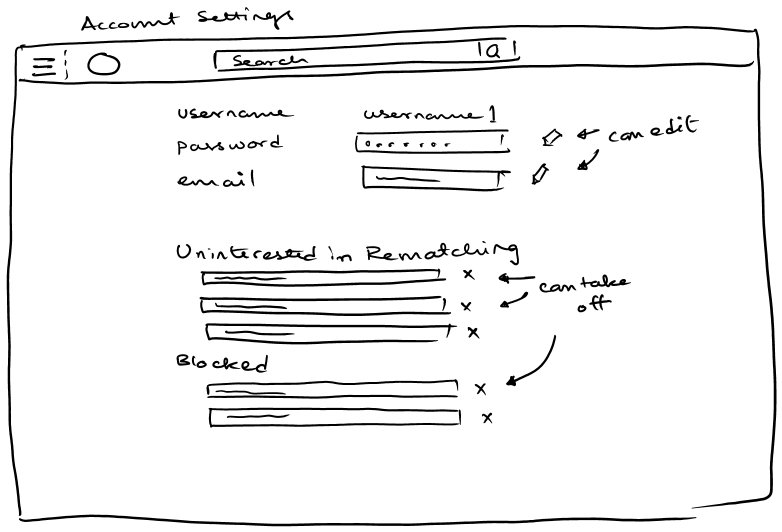 Account Settings
Search
username username1
password
can edit
email
Uninterested in Rematching
x
can take
off
x
x
Blocked
x
x